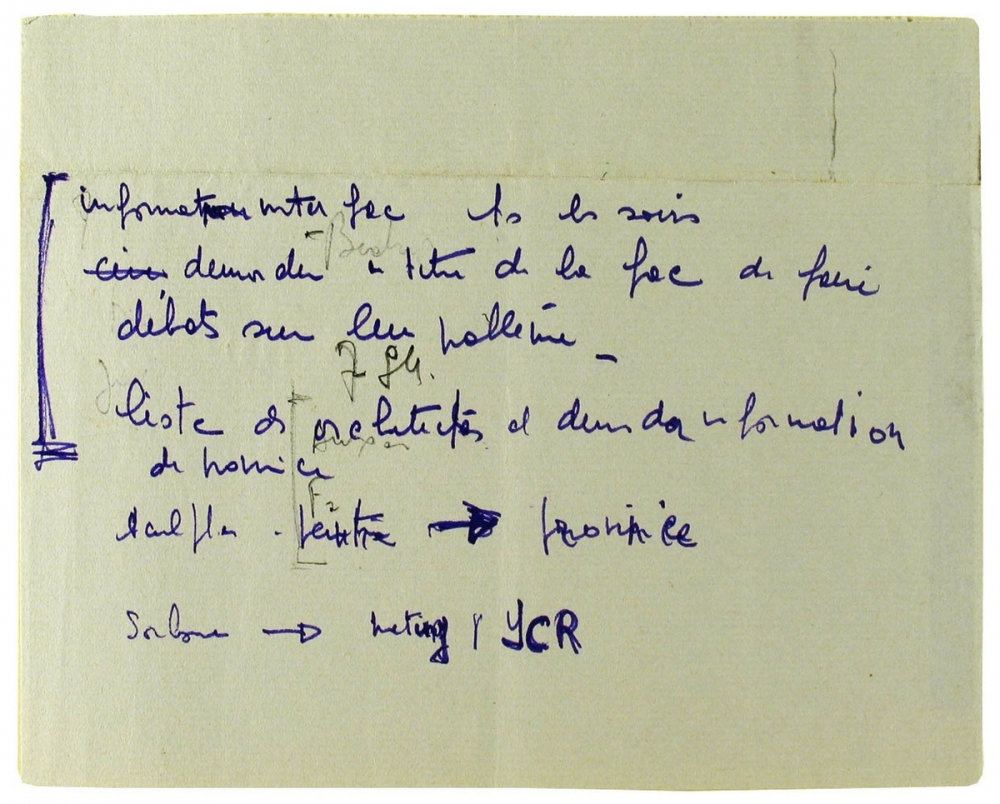 information inter fac ts les soirs
demander a titre de la fac de faire
débats sur leur problème _
7 84.
liste ds architectes et demander information
de province
sculpteur - peintre → province
Sorbonne → meting JCR